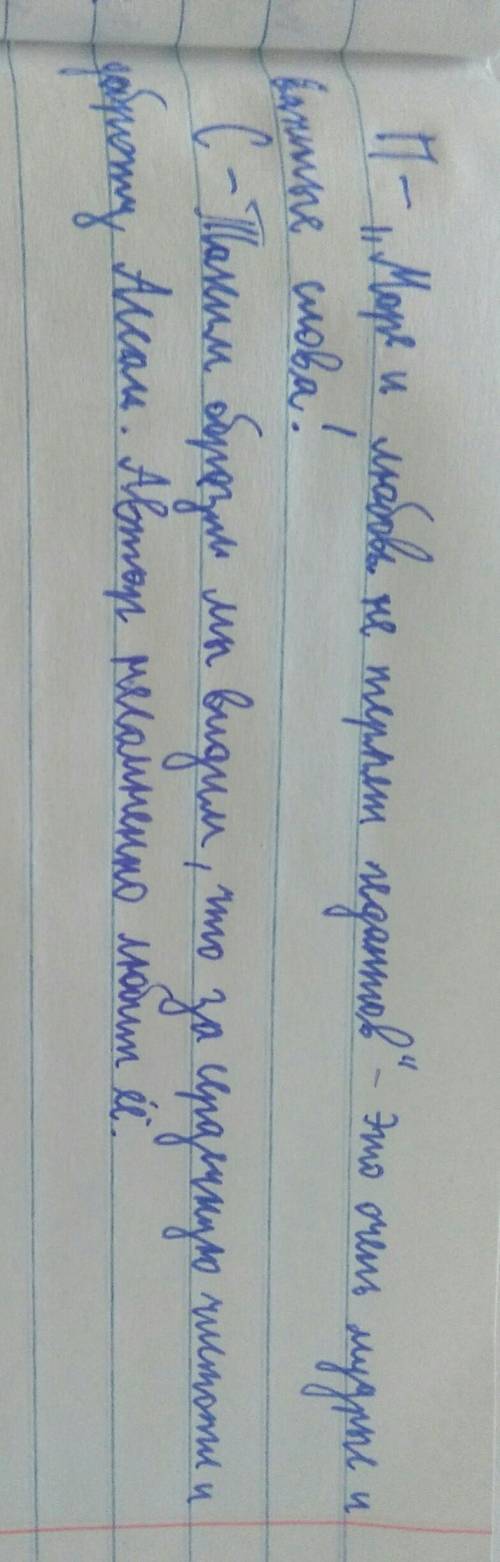 П - „Море и любовь не терпят педантов" - это очень мудрые и
важные слова!
С - Таким образом мы видим, что за сердечную чистоты и
доброту, Ассоль. Автор несомненно любит её.